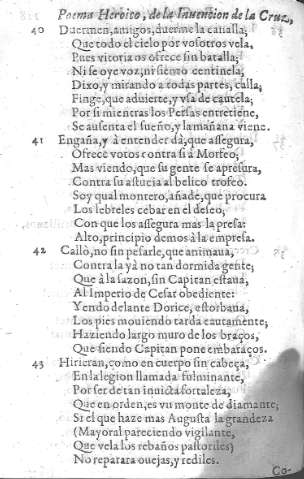 Poema Heroico, de la Inuencion de la Cruz,
40 Duermen, amigos, duerme la canalla;
Que todo el cielo por vosotros vela,
Pues vitoria os ofrece sin batalla;
Ni se oye voz, ni siento centinela;
Dixo, y mirando a todas partes, calla;
Finge, que aduierte, y vsa de cautela;
Por si mientras los Persas entretiene,
Se ausenta el sueño, y la mañana viene.
41 Engaña, y à entender dà, que assegura,
Ofrece votos contra si à Morfeo;
Mas viendo, que su gente se apresura,
Contra su astucia al belico trofeo.
Soy qual montero, añade, que procura
Los lebreles cebar en el deseo;
Con que los assegura mas la presa:
Alto, principio demos à la empresa.
42 Callò, no sin pesarle, que animaua,
Contra la yà no tan dormida gente;
Que à la sazon, sin Capitan estaua,
Al Imperio de Cesar obediente:
Yendo delante Dorice, estorbaua,
Los pies mouiendo tarda cautamente;
Haziendo largo muro de los braços,
Que siendo Capitan pone embaraços.
43 Hirieran, como en cuerpo sin cabeça,
En la legion llamada fulminante,
Por ser de tan inuicta fortaleza,
Que en orden, es vn monte de diamante;
Si el que haze mas Augusta la grandeza
(Mayoral pareciendo vigilante,
Que vela los rebaños pastoriles)
No reparara ouejas, y rediles.
Co-